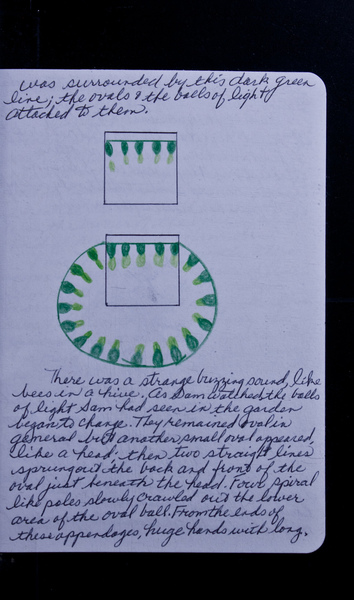 was surrounded by this dark green
line; the ovals & the balls of light
attached to them.
There was a strange buzzing sound, like
bees in a hive. As Sam watched the balls
of light Sam had seen in the garden
began to change. They remained oval in
general but another small oval appeared,
like a head; then two straight lines
sprung out the back and front of the
oval just beneath the head. Four spiral
like poles slowly crawled out the lower
area of the oval ball. From the ends of
these appendages, huge hands with long,